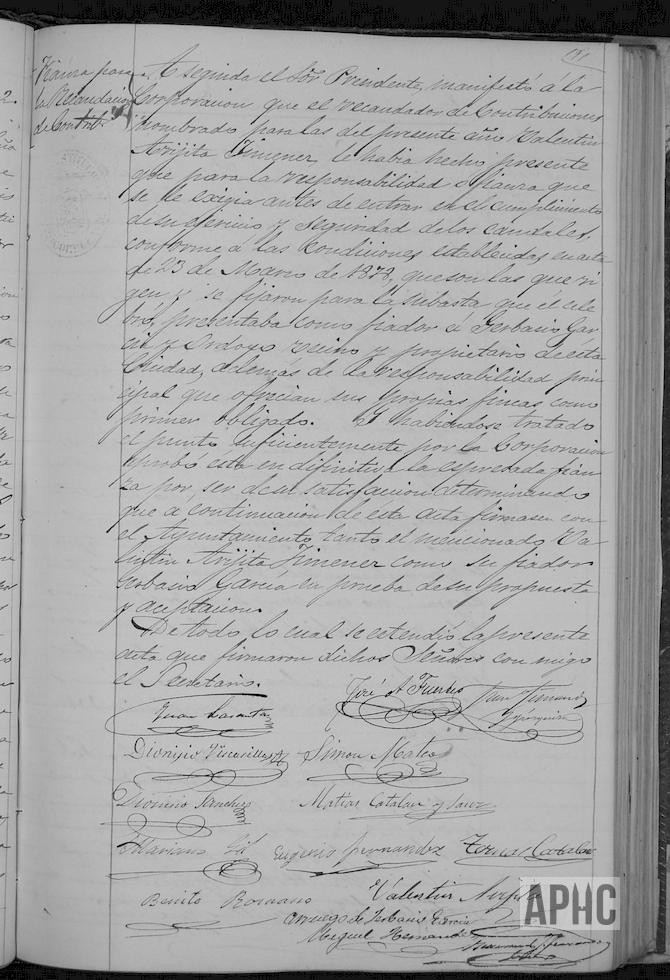 Fianza para
la Recaudacion
de Contrib.s
A seguida el Sor. Presidente, manifestó á la
Corporacion que el recaudador de Contribuciones
nombrado para las del presente año Valentin
Arijita Jimenez, le habia hecho presente
que para la responsabilidad ó fianza que
se le exigia antes de entrar en el cumplimiento
de su servicio y seguridad de los caudales,
conforme á las condiciones establecidas en acta
de 23 de Marzo de 1878, que son las que ri
gen, y se fijaron para la subasta que él cele
bró, presentaba como fiador á Gerbasio Gar
cia y Ordoyo vecino y propietario de esta
Ciudad, además de la responsabilidad prin
cipal que ofrecian sus propias fincas como
primer obligado. Y habiendose tratado
el punto suficientemente por la Corporacion
aprobó esta en difinitiva la espresada fian
za por ser de su satisfaccion determinando
que a continuacion de esta acta firmasen con
el Ayuntamiento tanto el mencionado Va
lentin Arijita Jimenez como su fiador
Gerbasio Garcia en prueba de su propuesta
y aceptacion.
De todo lo cual se estendió la presente
acta que firmaron dichos Señores con migo
el Secretario.
José A Fuertes
Juan
Dionisio Viscasillas
Simon Mateo
Dionisio Sanchez
Matias Catalan y Sanz
Mariano Gil
Eugenio Fernandez
Tomas Catalan
Benito Romano
Valentin Arijita
Arruego de Gerbasio Garcia
Miguel Hernandez
APHC